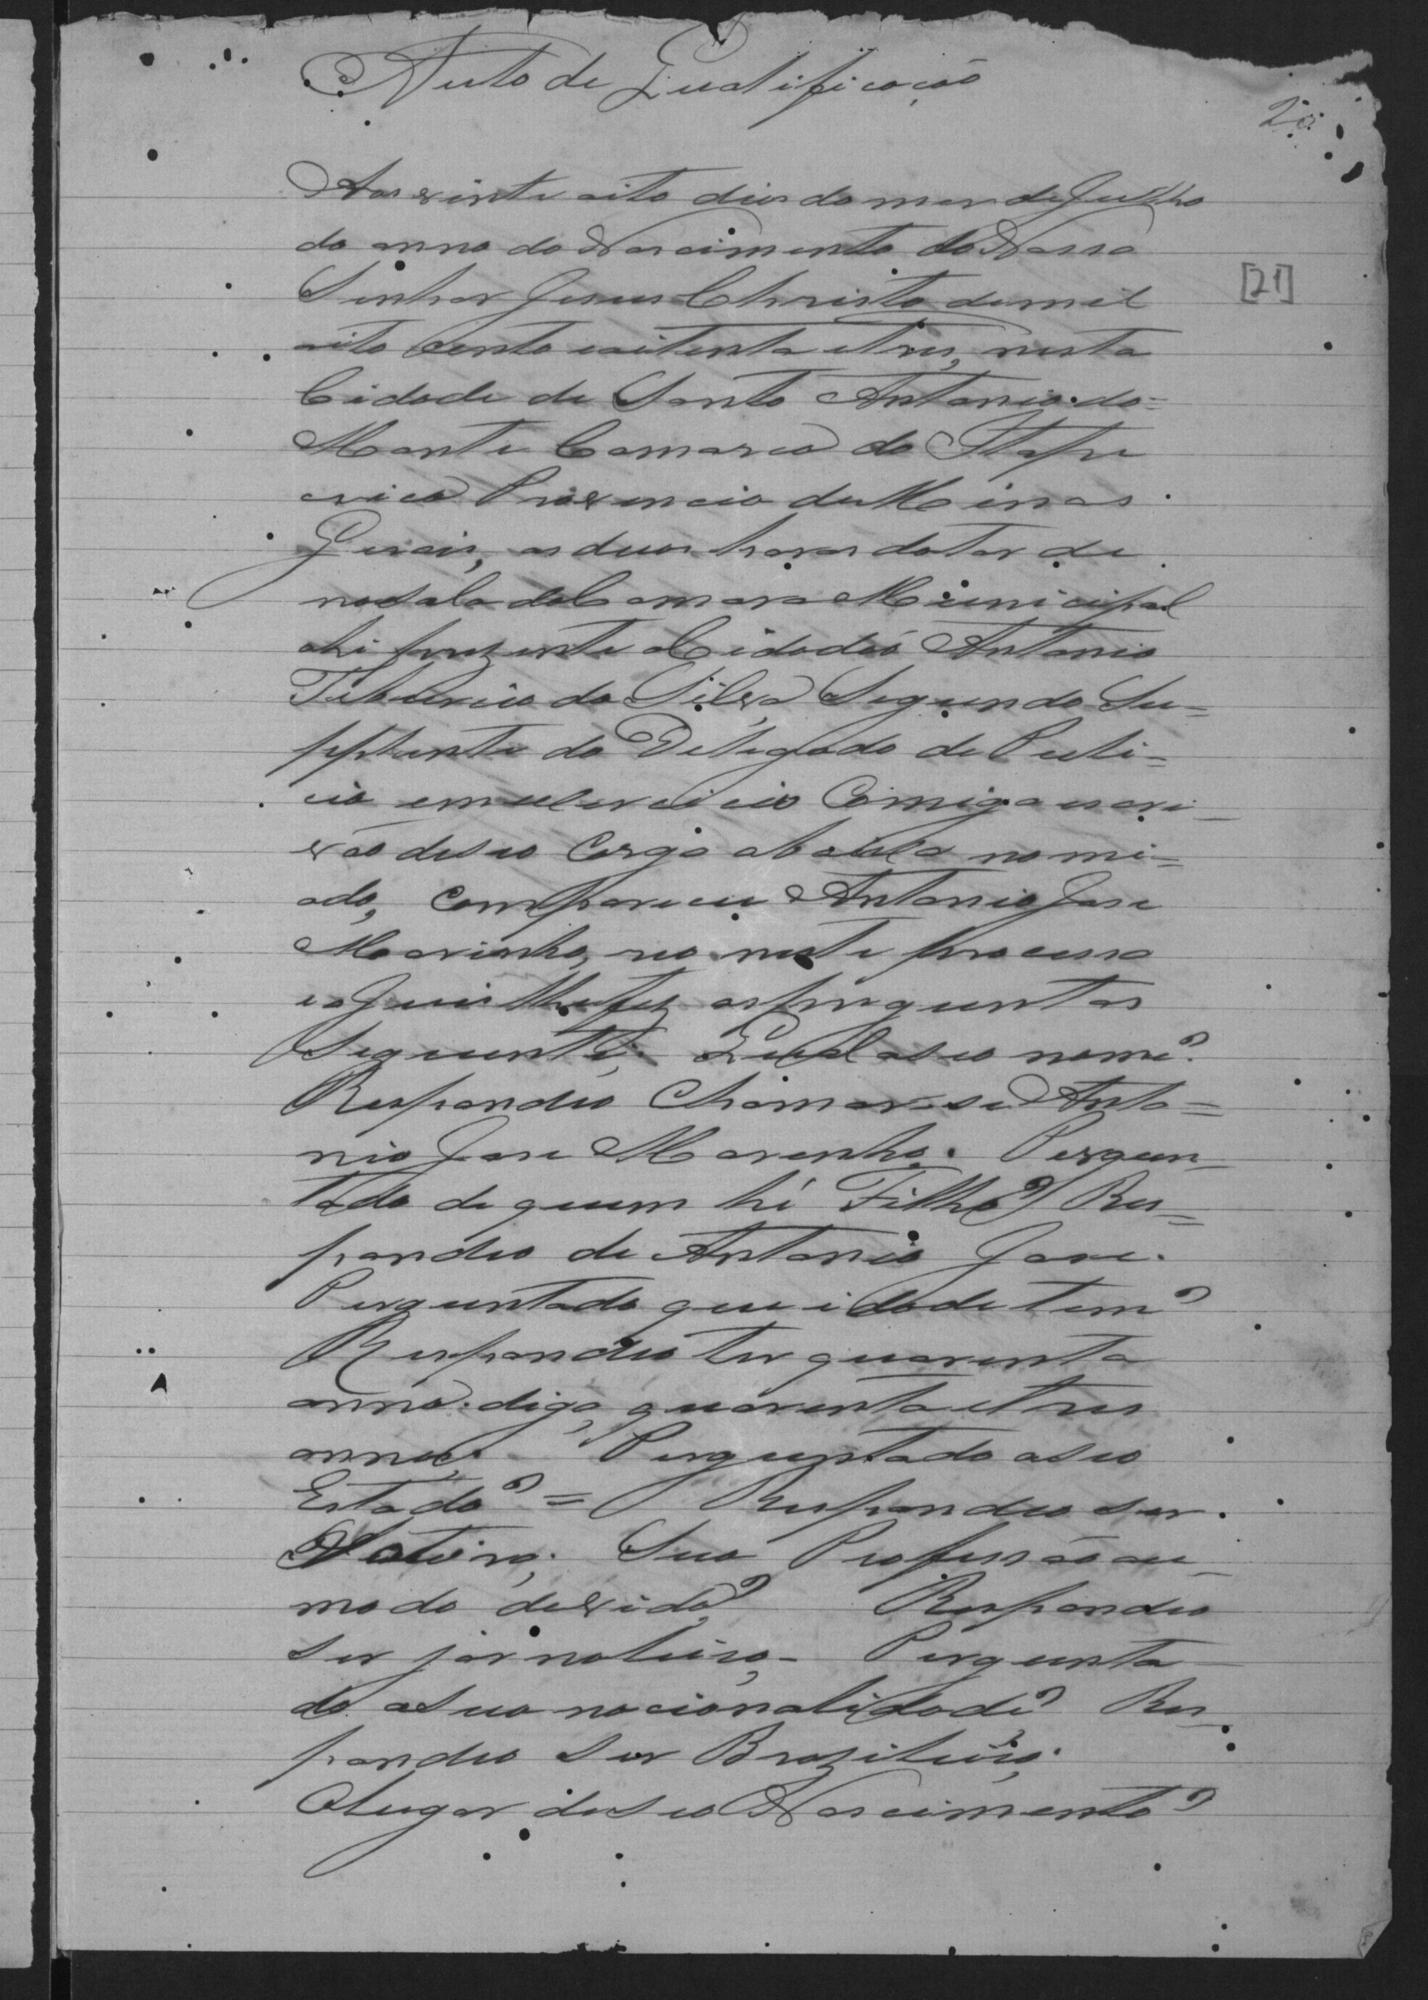 Auto de Qualificação
20
Aos vinte oito dias do mes de Julho
do anno do Nascimento de Nosso
[21]
Senhor Jesus Christo de mil
oito cento e oitenta e tres, nesta
Cidade de Santo Antonio do
Monte Comarca do Itape
cirica Provencia de Minas
Gerais, as duas horas da tarde
na sala da Camara Municipal
ahi prezente o Cidadaó Antonio
Teburcio da Silva Segundo Su=
pplente do Delegado de Puli=
cia em exercicio Comigo escri
vão de seo Cargo abaixo nomi=
ado, Compareceu Antonio Jose
Marinho, reo neste processo
e o Juis lhe fez as preguntas
Seguinte; Qual o seo nome?
Respondeo Chamar-se Anto=
nio Jose Marinho. Pergun
tado de quem hé Filho? Res=
pondeo de Antonio Jose.
Perguntado que idade tem?
Respondeo ter quarenta
anno. digo, quarenta e tres
annos. Perguntado o seo
Estado? = Respondeo ser
Solteiro; Sua Profissão ou
modo de vida? Respondeo
ser jornaleiro,- Pergunta
do a Sua nacionalidade? Res
pondeo Ser Brazileiro;
O lugar de seo Nascimento?